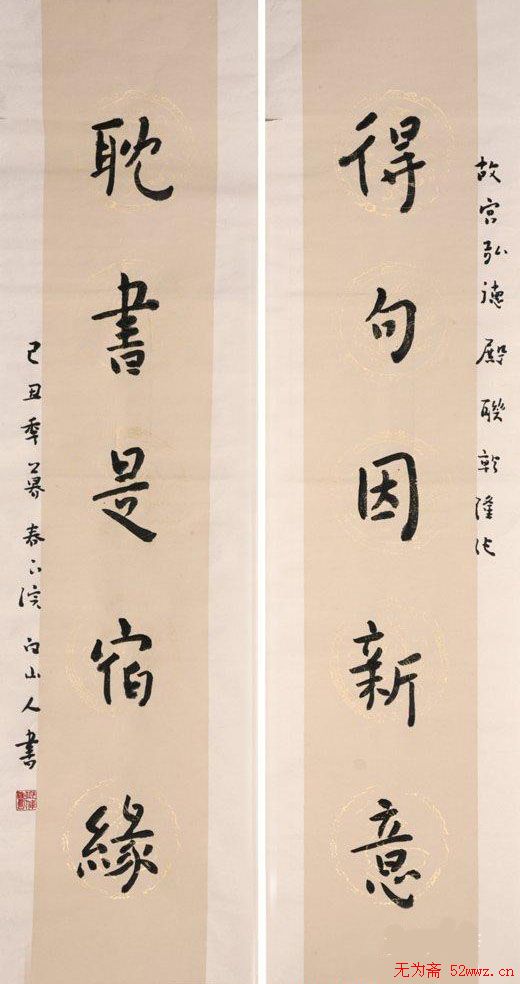 故宫弘德殿聯乾隆作
得句因新意
耽書是宿緣
己丑秊暮春下浣白山人書
无为斋 52wwz.cn